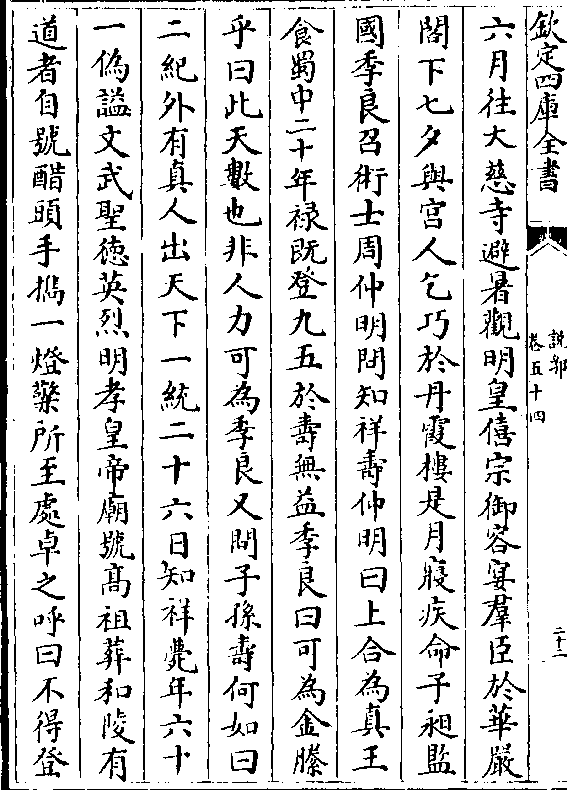 欽定四庫全書
說郛
卷五十四
二十二
六月往大慈寺避暑觀明皇僖宗御容宴羣臣於華嚴
閣下七夕與宫人乞巧於丹霞樓是月寢疾命子昶監
國季良召術士周仲明問知祥壽仲明曰上合為真王
食蜀中二十年祿既登九五於壽無益季良曰可為金縢
乎曰此天數也非人力可為季良又問子孫壽何如曰
二紀外有真人出天下一統二十六日知祥薨年六十
一偽謚文武聖德英烈明孝皇帝廟號髙祖葬和陵有
道者自號醋頭手擕一燈檠所至處卓之呼曰不得登